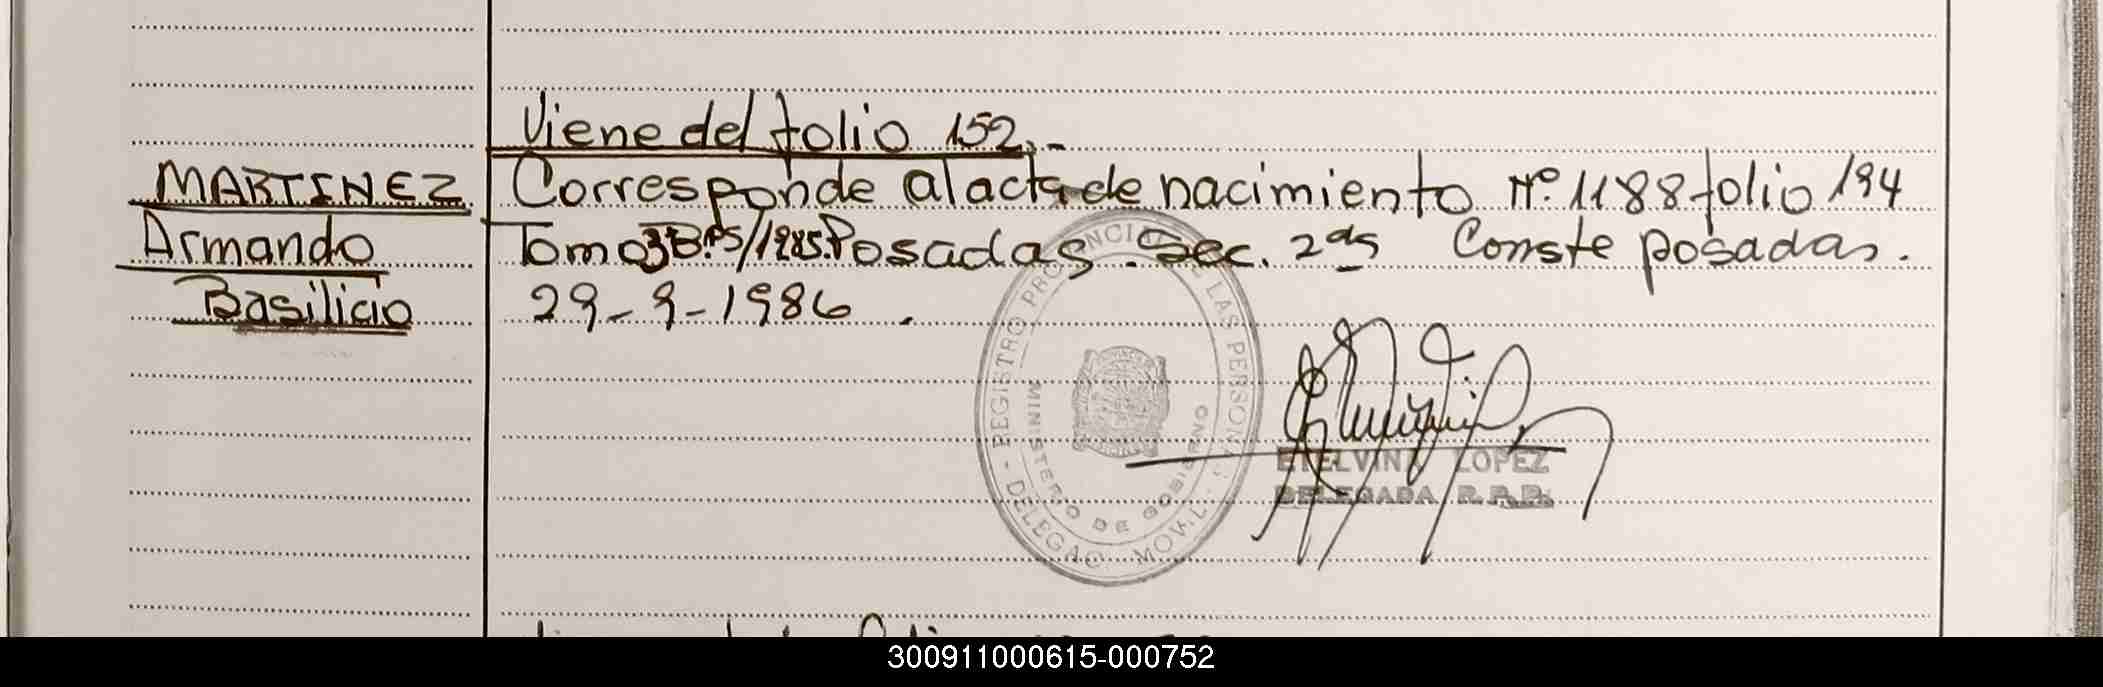 Viene del folio 152.-
MARTINEZ
Armando
Basilicio
Corresponde al acta de nacimiento Nº 1188 folio 194
Tomo 3 Bis/1985. Posadas. Sec. 2da Conste posadas.
29-9-1986.
REGISTRO PROVINCIAL DE LAS PERSONAS
MINISTERIO DE GOBIERNO
DELEGAC. MOVIL
ETELVINA LOPEZ
DELEGADA R.P.P.
300911000615-000752